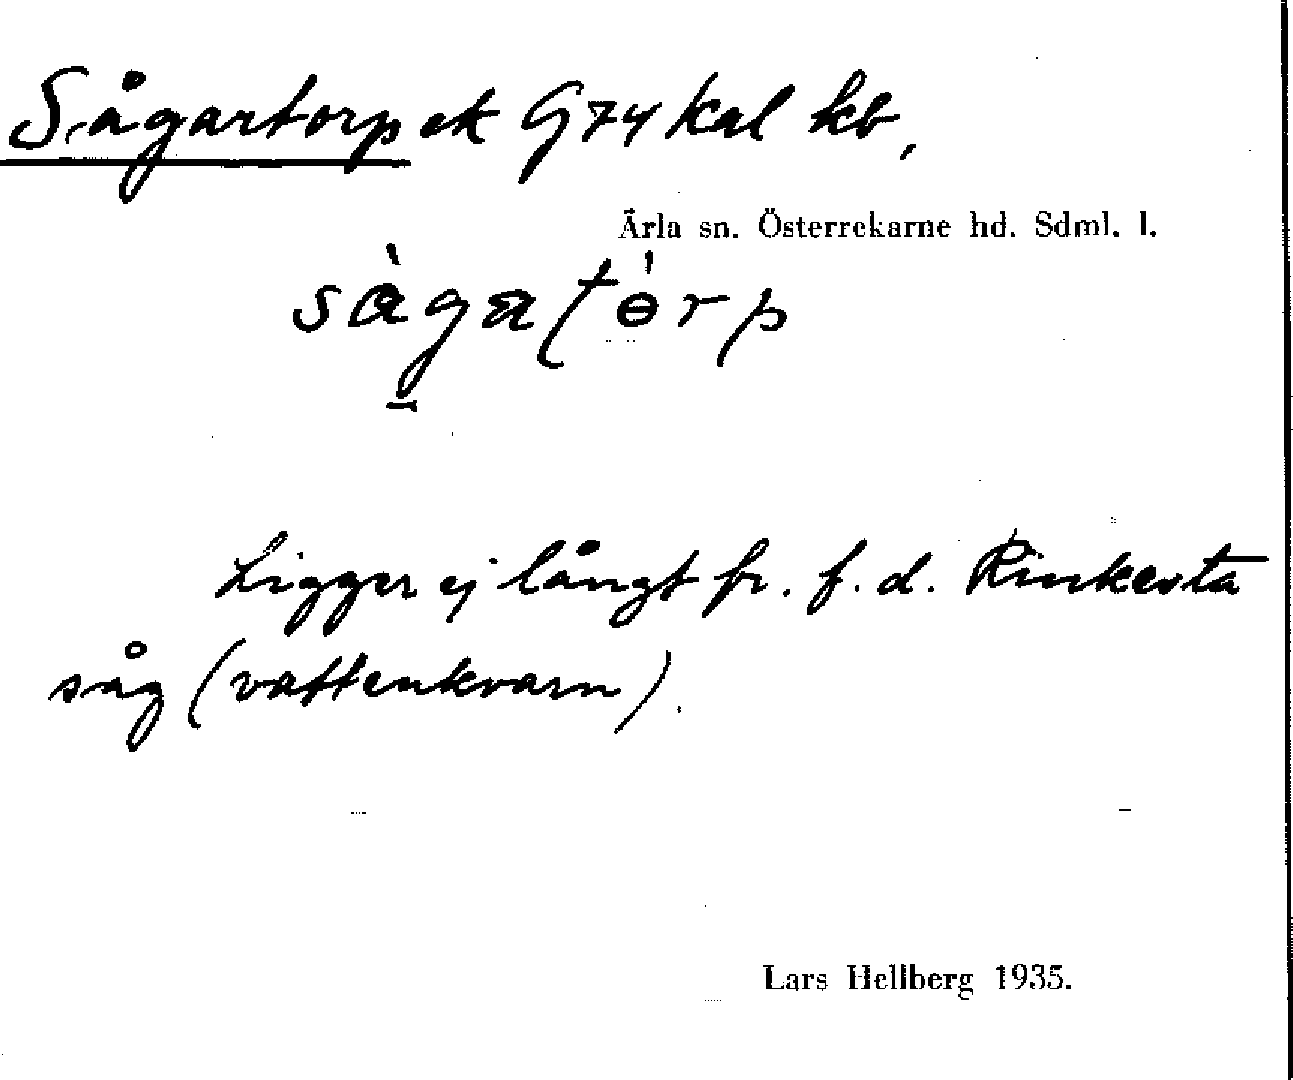 Sågartorp ek G74 kal kb,
Ärla sn. Österrekarne hd. Sdml. l.
sàgatɵ́rp
Ligger ej långt fr. f. d. Rinkesta
såg (vattenkvarn).
Lars Hellberg 1935.